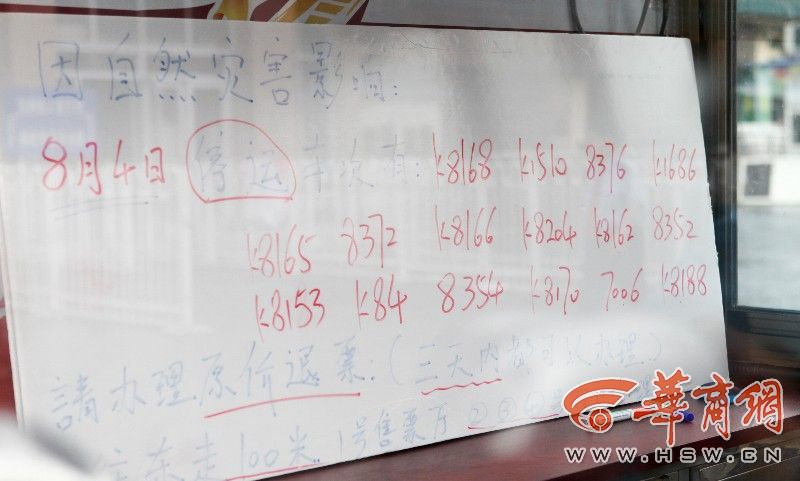 因自然灾害影响:
8月4日 停运 车次有: K8168 K1510 8376 K1686
K8165 8372 K8166 K8204 K8162 8352
K8153 K84 8354 K8170 7006 K8188
請办理原价退票:(三天内都可以办理)
往东走100米 1号售票厅 ② ③ ④
華商網
WWW.HSW.CN